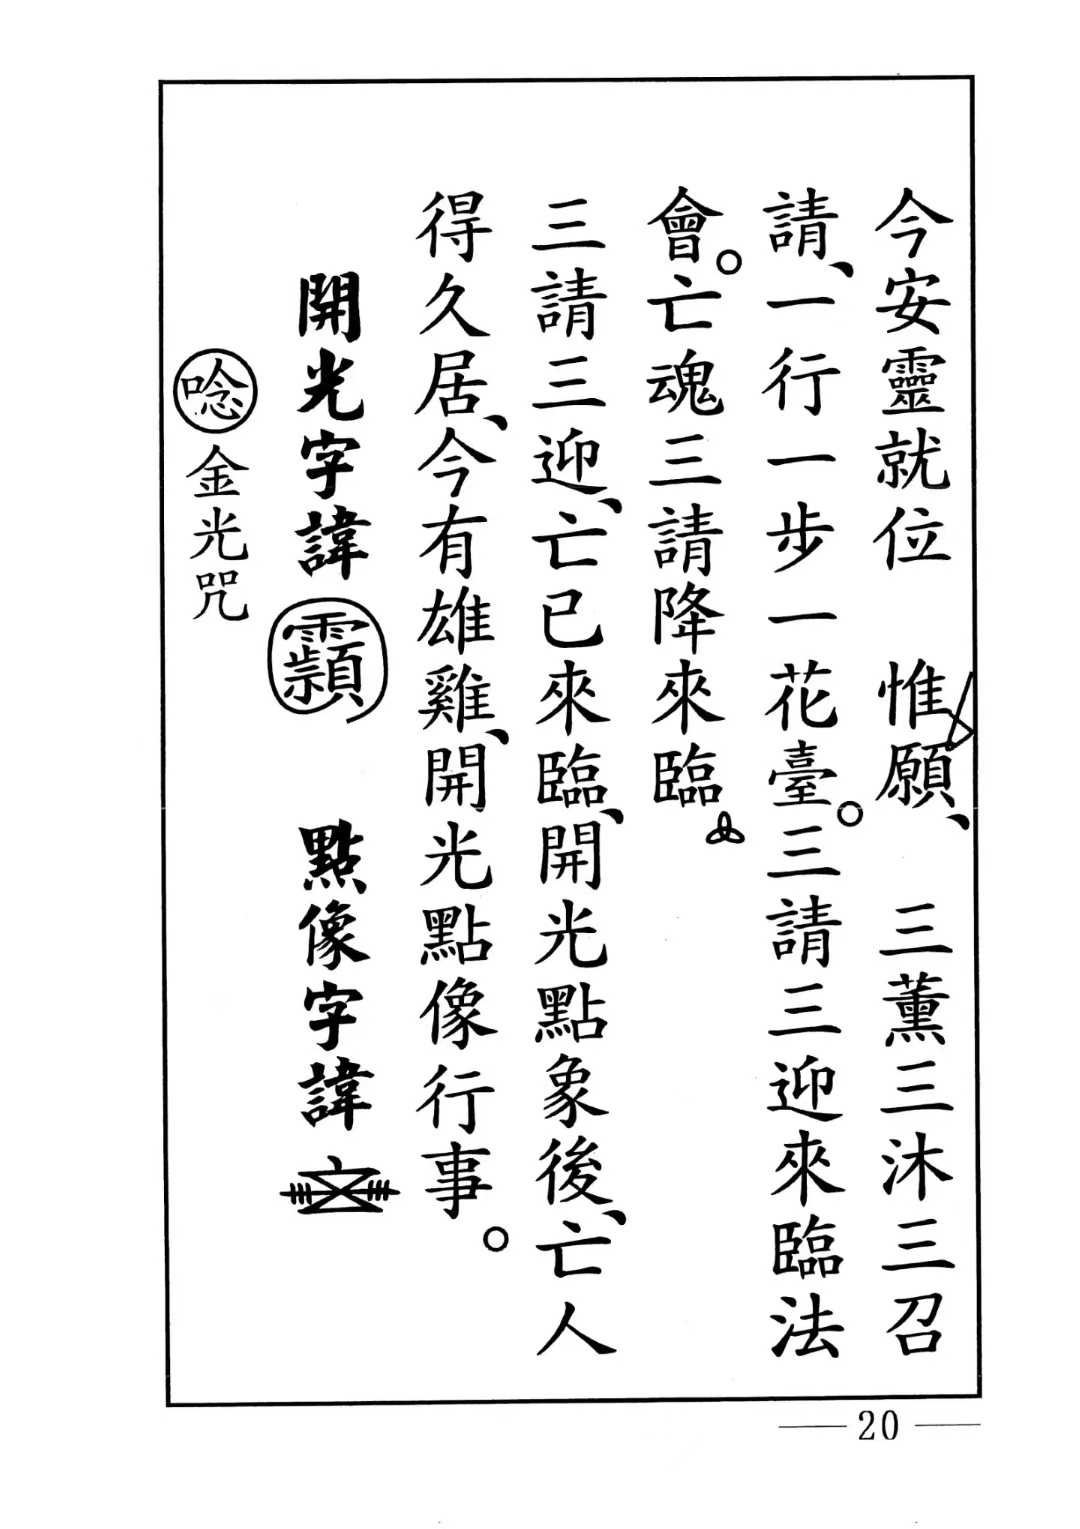 今安靈就位　惟願、　三薰三沐三召
請、一行一步一花臺。三請三迎來臨法
會。亡魂三請降來臨
三請三迎、亡已來臨、開光點象後、亡人
得久居、今有雄雞、開光點像行事。
開光字諱　點像字諱
唸金光咒
20